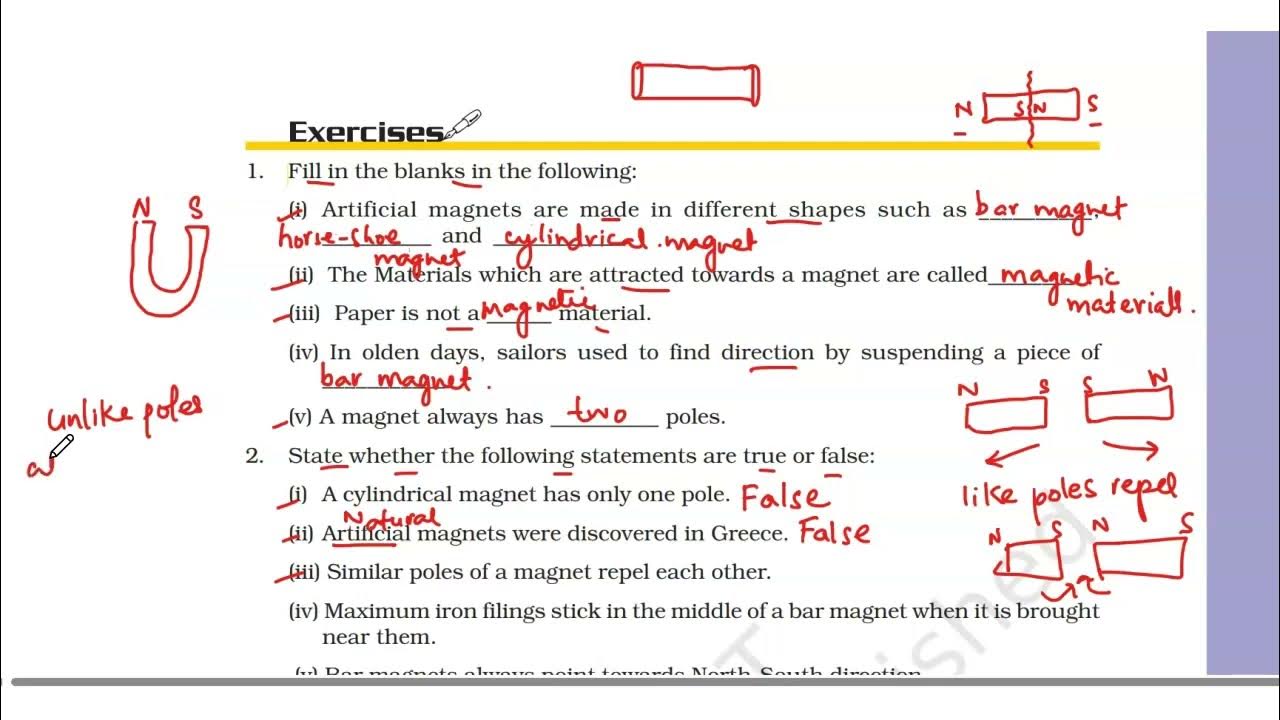 N S
Exercises
1. Fill in the blanks in the following:
(i) Artificial magnets are made in different shapes such as bar magnet,
horse-shoe magnet and cylindrical magnet
(ii) The Materials which are attracted towards a magnet are called magnetic
materials.
(iii) Paper is not a magnetic material.
(iv) In olden days, sailors used to find direction by suspending a piece of
bar magnet.
(v) A magnet always has two poles.
2. State whether the following statements are true or false:
(i) A cylindrical magnet has only one pole. False
Natural
(ii) Artificial magnets were discovered in Greece. False
(iii) Similar poles of a magnet repel each other.
(iv) Maximum iron filings stick in the middle of a bar magnet when it is brought
near them.
(v) Bar magnets always point towards North-South direction.
N S N S
N S
unlike poles
N S S N
like poles repel
N S N S